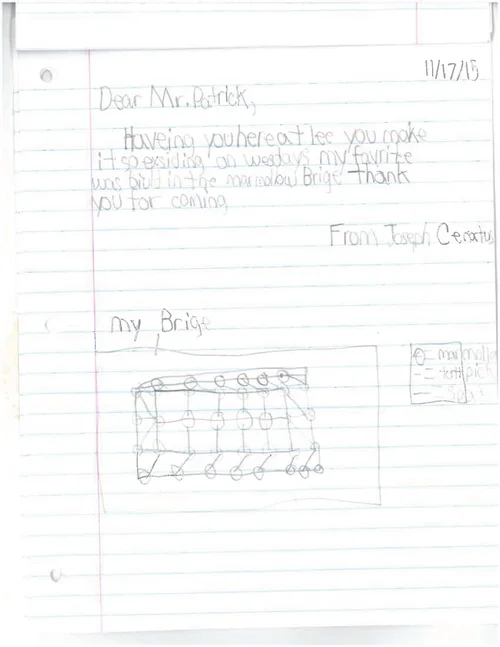 11/17/15
Dear Mr. Patrick,
Haveing you here at lee you make
it so exsiding on wesdays my favrite
was biult in the marmolow Brige thank
you for coming
From Joseph
my Brige
= marmallo
= toth pick